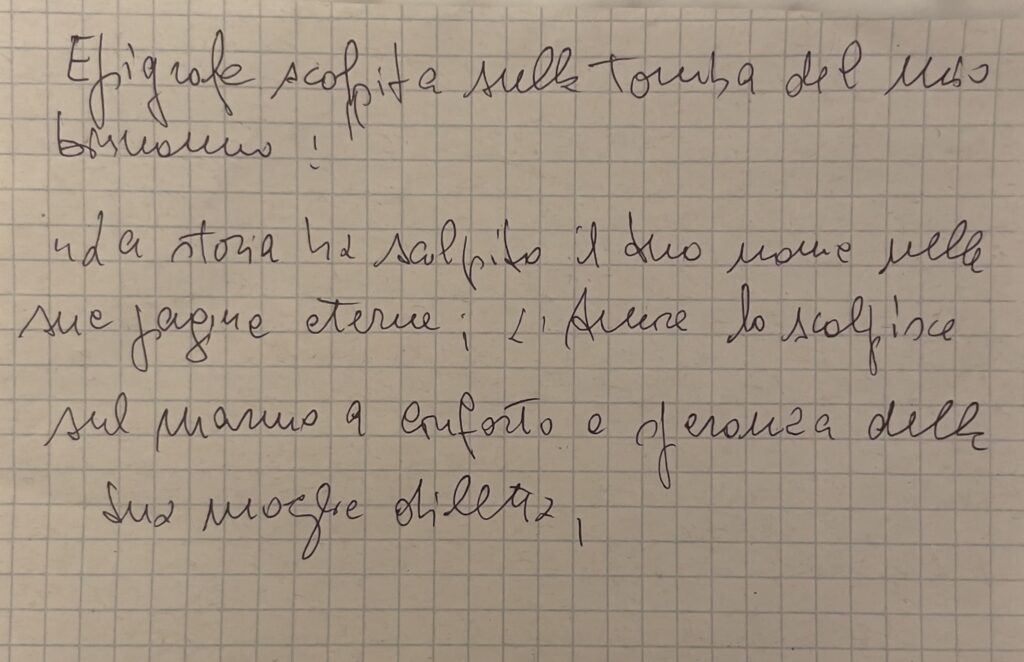 Epigrafe scolpita sulla tomba del mio
bisnonno:
"La storia ha scolpito il suo nome nelle
sue pagine eterne; L'Amore lo scolpisce
sul marmo a conforto e speranza della
sua moglie diletta,